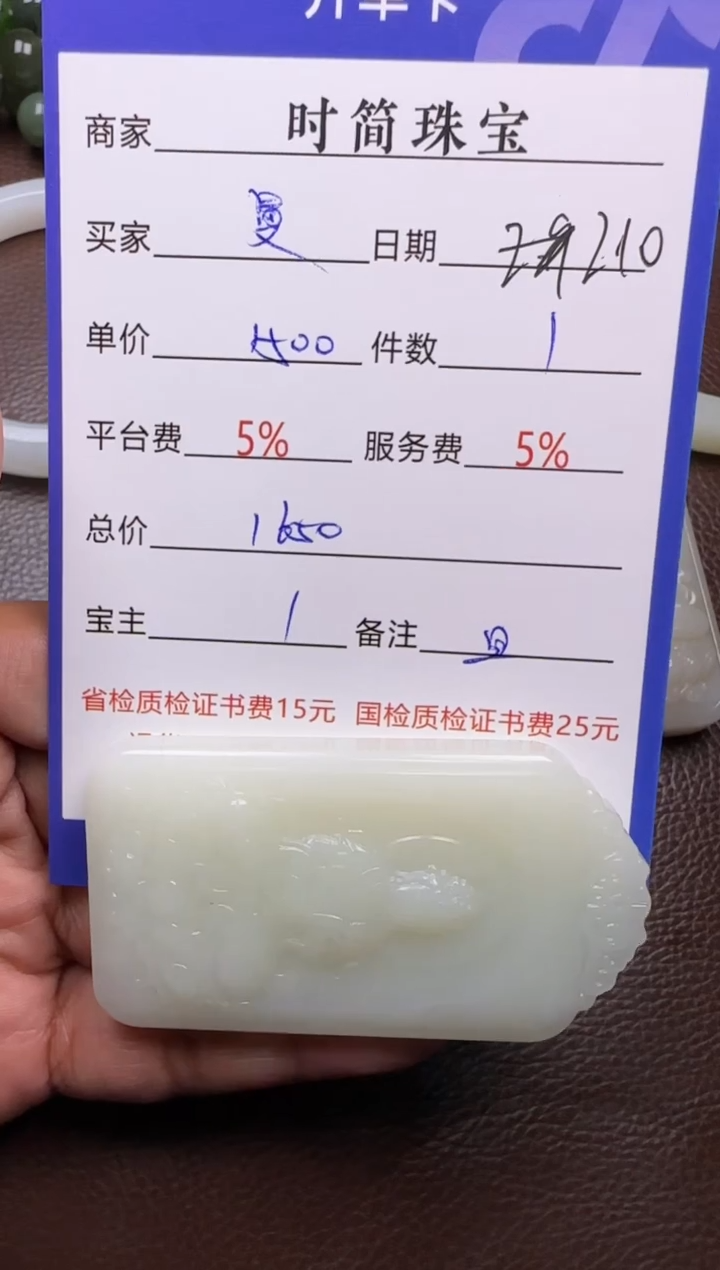 开单卡
商家 时简珠宝
买家 曼 日期 210
单价 1500 件数 1
平台费 5% 服务费 5%
总价 1650
宝主 1 备注
省检质检证书费15元 国检质检证书费25元